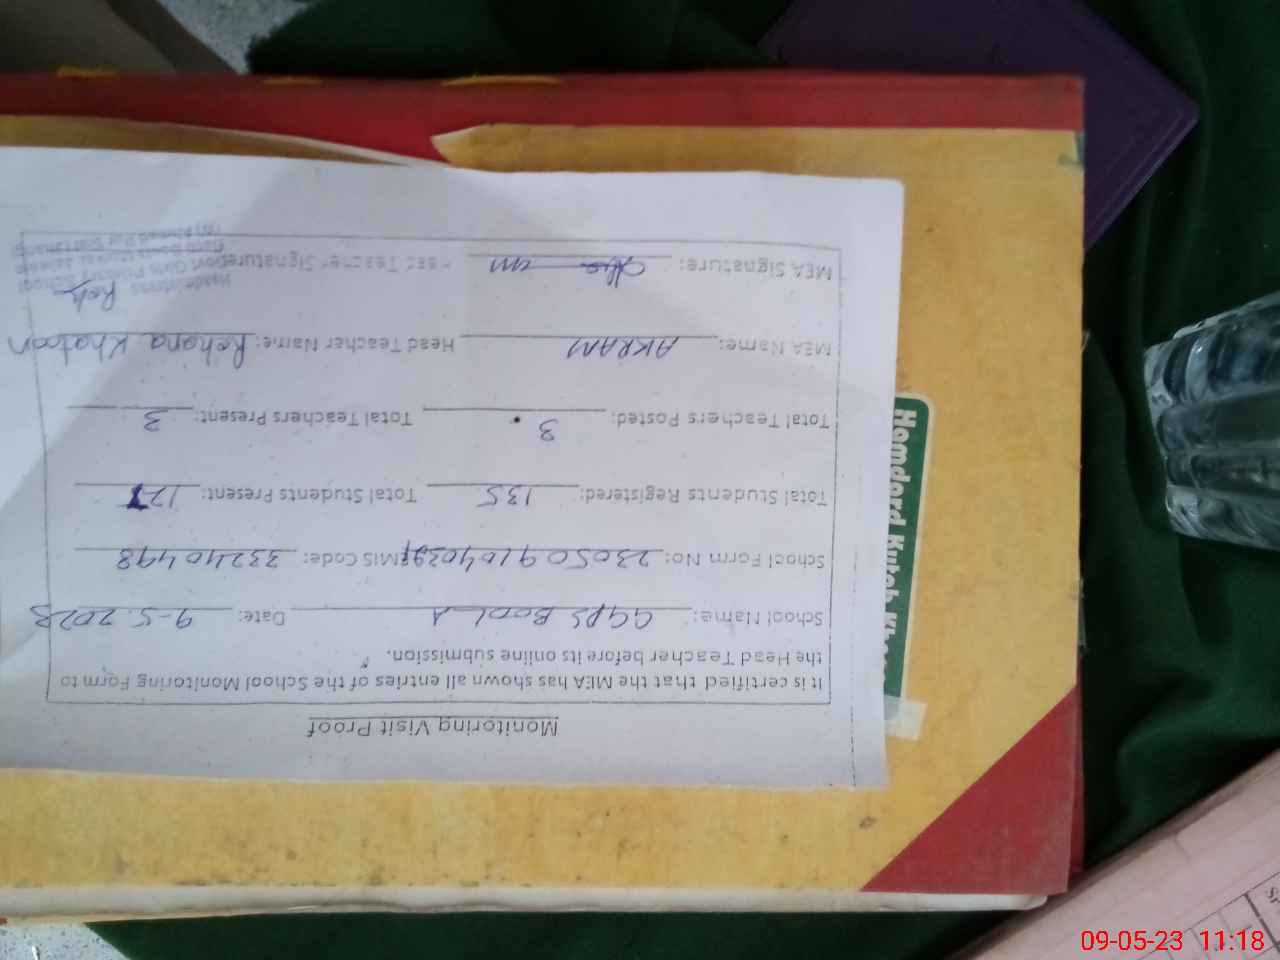 Monitoring Visit Proof
It is certified that the MEA has shown all entries of the School Monitoring Form to
the Head Teacher before its online submission.
School Name: GGPS BOOLA Date: 9-5-2023
School Form No: EMIS Code: 33240498
Total Students Registered: 135 Total Students Present:
Total Teachers Posted: 3 Total Teachers Present: 3
MEA Name: AKRAM Head Teacher Name: Rehana Khatoon
MEA Signature: Head Teacher Signature
Headmistress
Govt. Girls Primary School
Hamdard Kutab
09-05-23 11:18